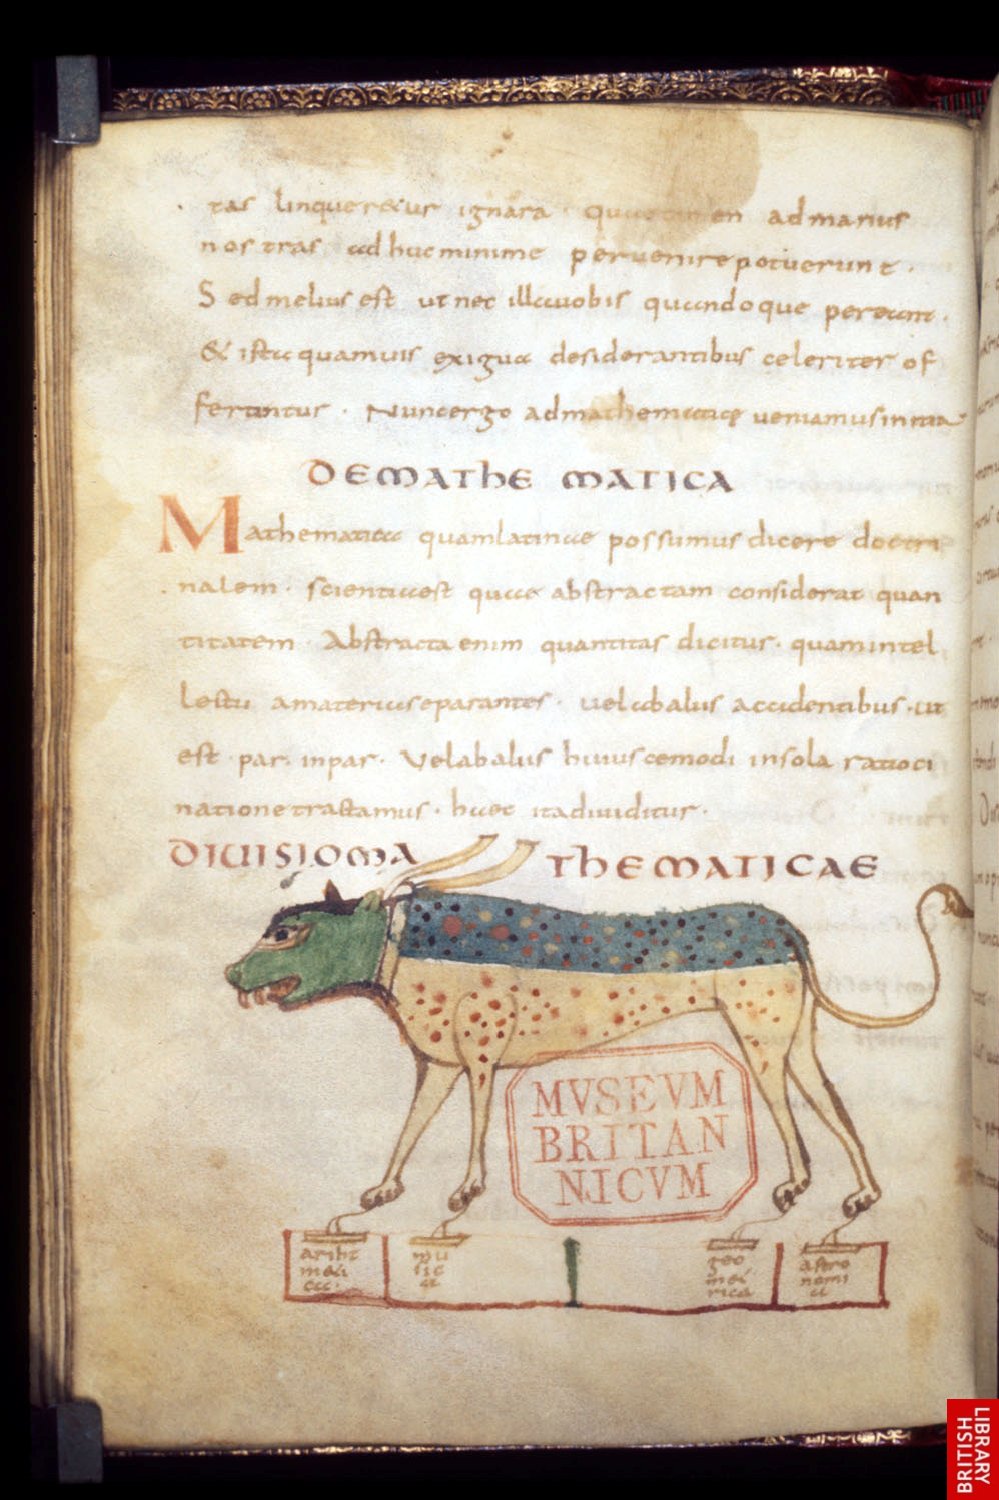 tas linqueretur ignara · quae tamen ad manus
nostras adhuc minime pervenire potuerunt.
Sed melius est ut nec illa vobis quandoque pereant.
& ista quamvis exigua desiderantibus celeriter of
ferantur · Nunc ergo ad mathematicę veniamus initia
DE MATHEMATICA
Mathematica quam latinae possumus dicere doctri
nalem · scientia est quae abstractam considerat quan
titatem · Abstracta enim quantitas dicitur · quam intel
lectu a materia separantes · vel ab alus accidentibus · ut
est · par · inpar · Vel ab alus huiuscemodi in sola ratioci
natione tractamus · haec ita dividitur ·
DIVISIO MATHEMATICAE
arith
meti
ca ·
mu
sic
a
geo
met
rica
astro
nomi
a
MVSEVM
BRITAN
NICVM
BRITISH
LIBRARY